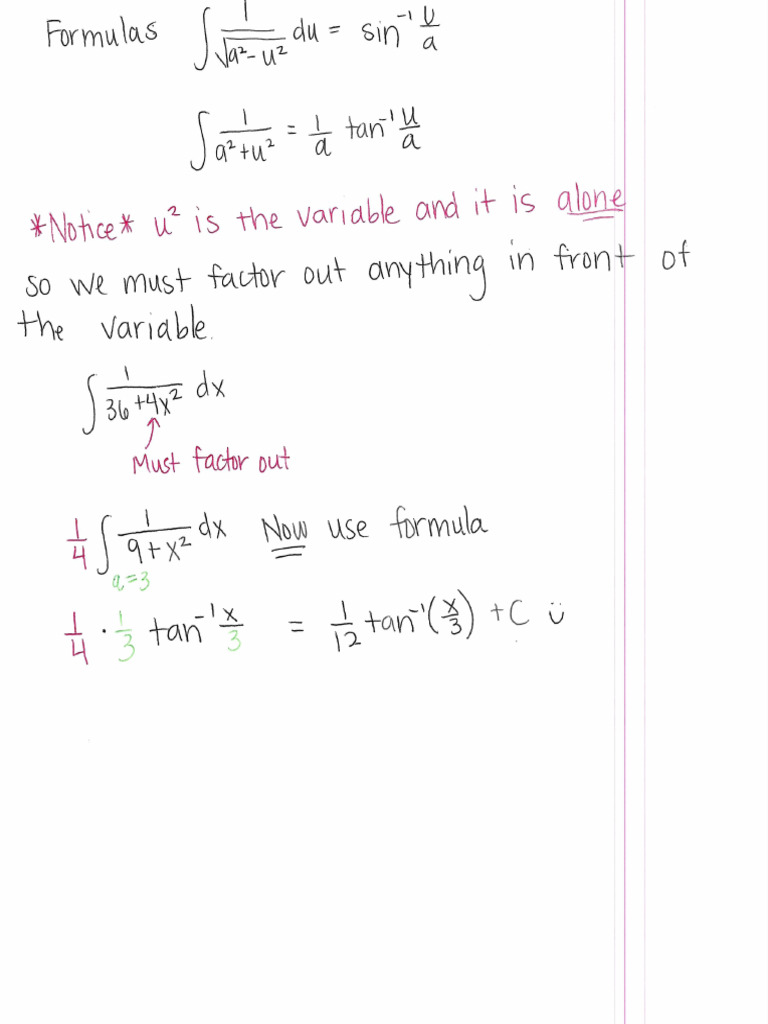 Formulas ∫ 1/√(a² - u²) du = sin⁻¹ u/a
∫ 1/(a² + u²) = 1/a tan⁻¹ u/a
*Notice* u² is the variable and it is alone
so we must factor out anything in front of
the variable.
∫ 1/(36 + 4x²) dx
Must factor out
1/4 ∫ 1/(9 + x²) dx Now use formula
a = 3
1/4 · 1/3 tan⁻¹ x/3 = 1/12 tan⁻¹(x/3) + C ü